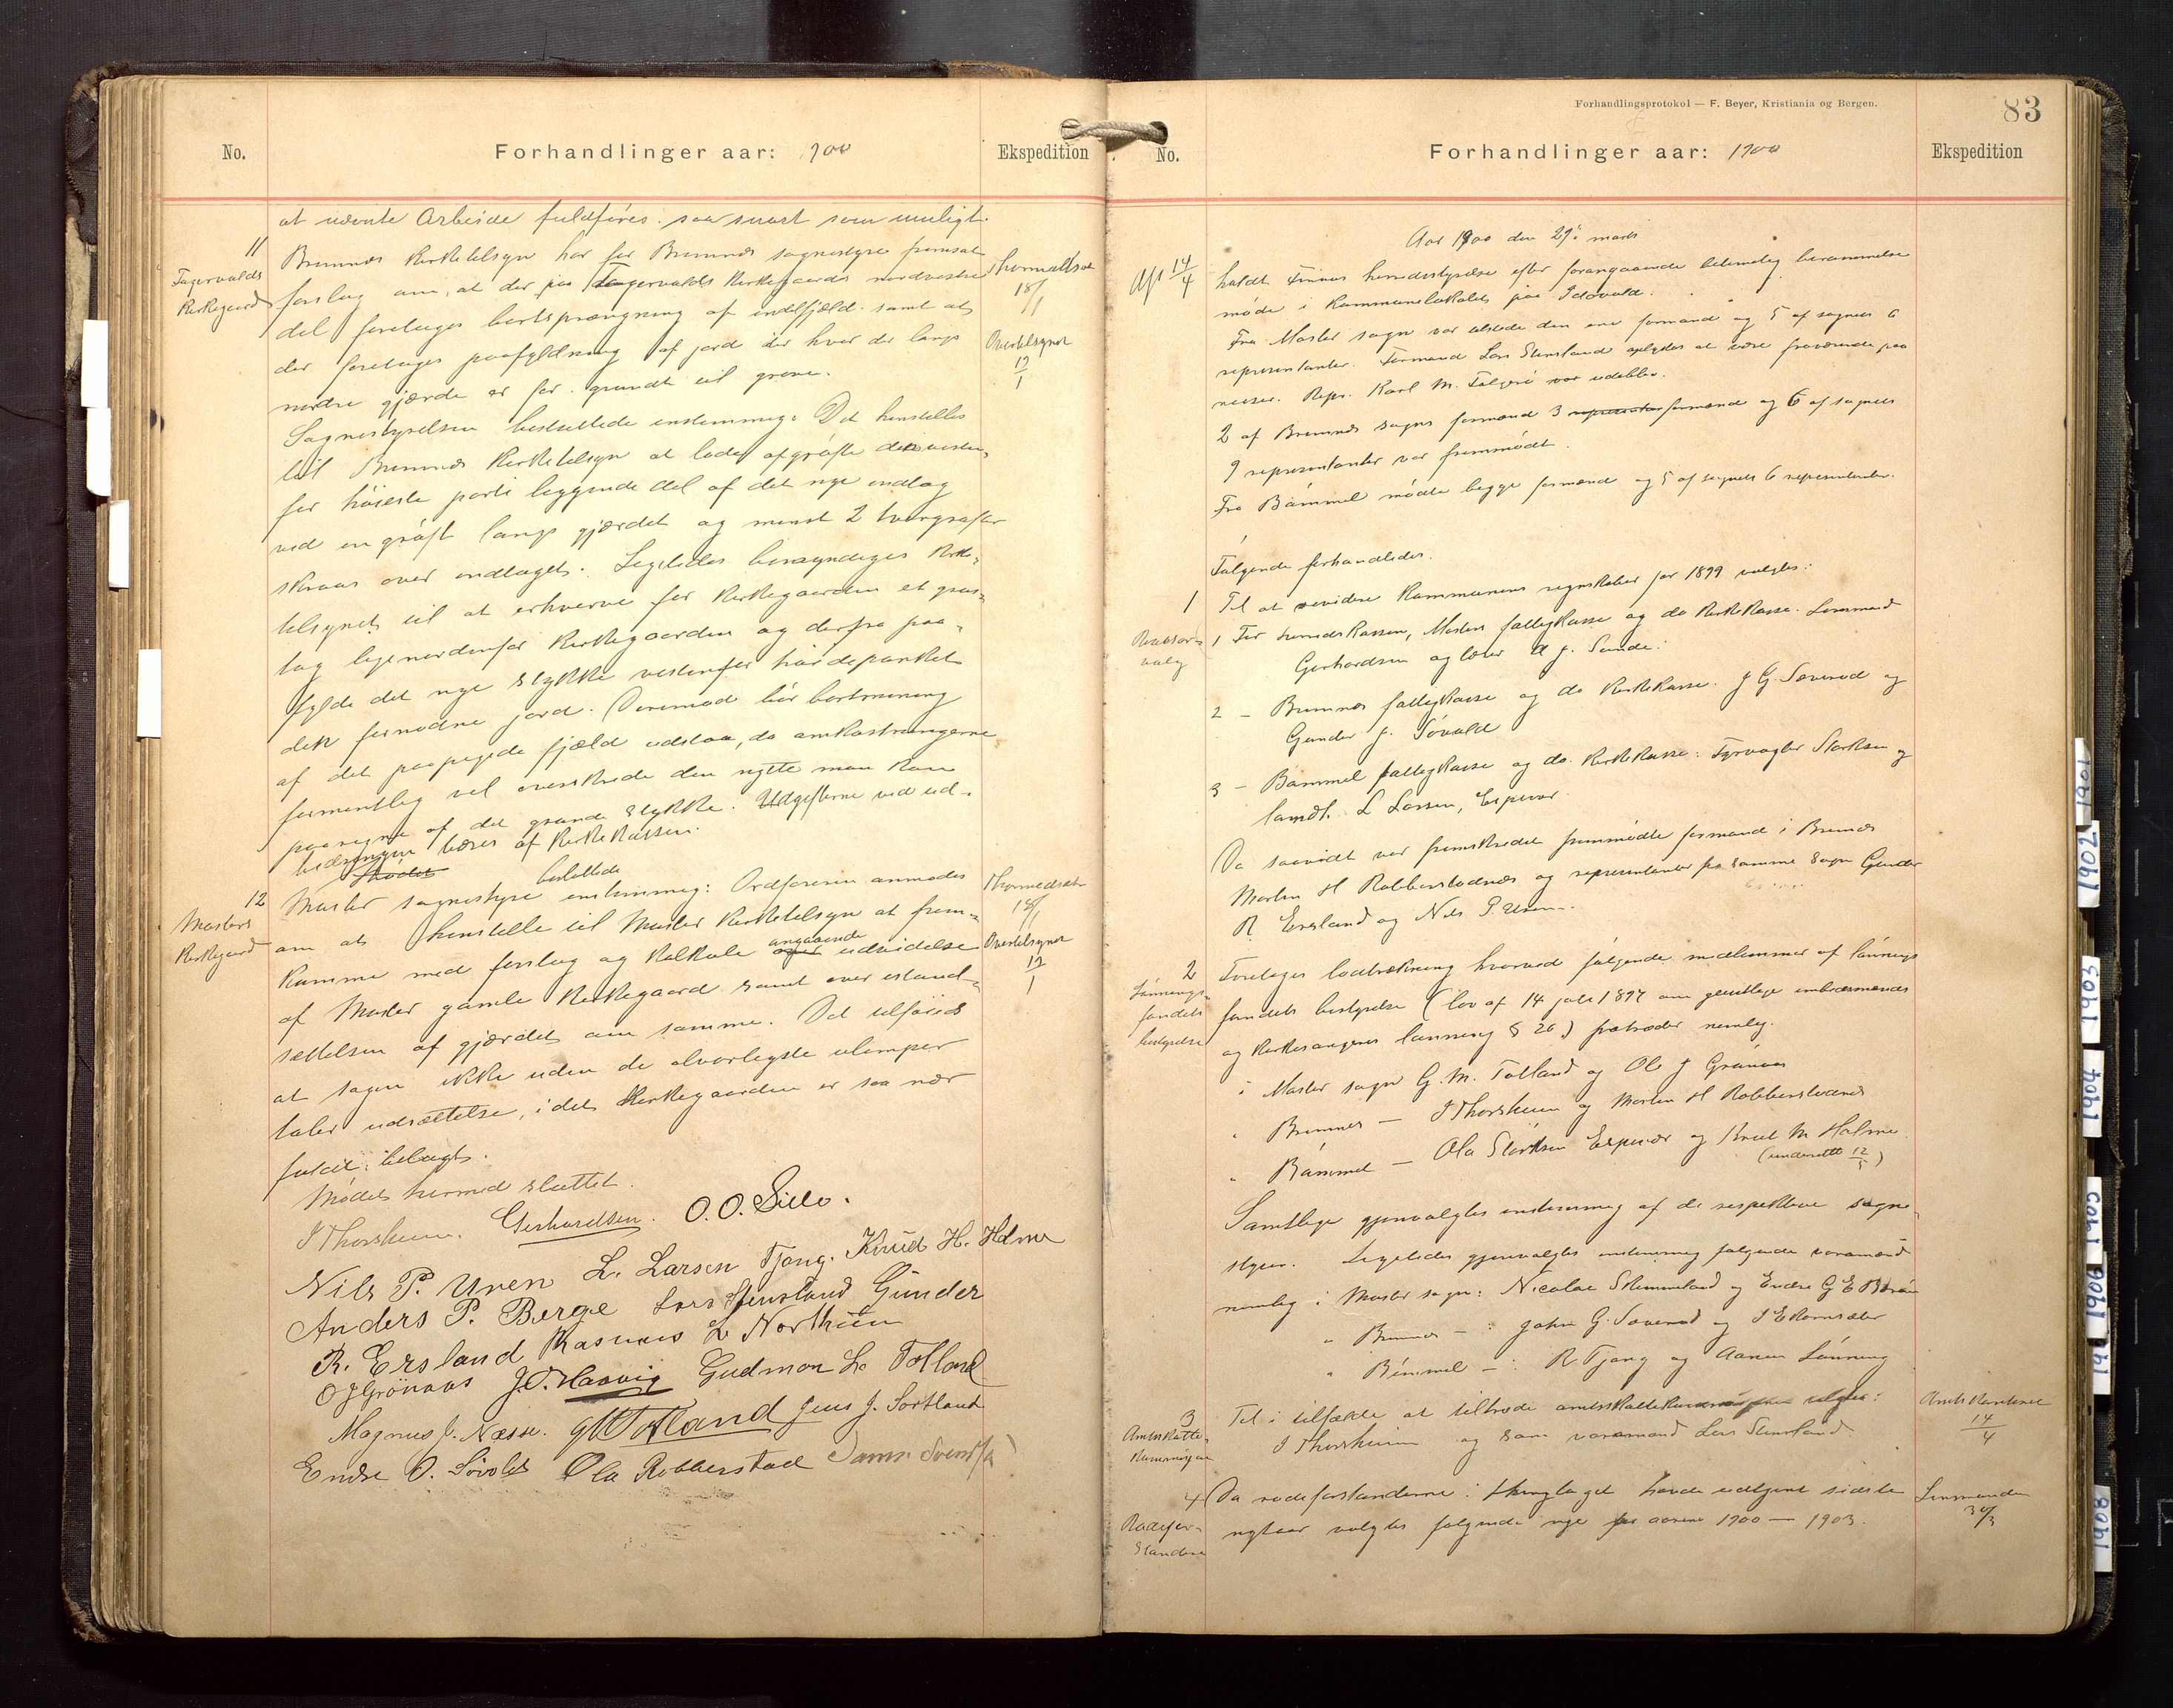 No.
Forhandlinger aar: 1900
Ekspedition
at uvænte Arbeide fuldføres saa snart som muligt.
11
Fagervolds
Kirkegaard
Bremnes Kirketilsyn har for Bremnes sognestyre fremsat
forslag om, at der paa Fagervolds Kirkegaards nordvestre
del foretages bortsprængning af indfjeld samt at
der foretages paafyldning af jord der hvor der langs
nordre gjærde er for grundt til grave.
Sognestyrelsen besluttede enstemmig: Det henstilles
til Bremnes Kirketilsyn at lade afgrøfte den vesten-
for høieste parti liggende del af det nye indlag
ved en grøft langs gjærdet og mindst 2 tvergrøfter
skraas over indlaget. Ligeledes bemyndiges Kirke-
tilsynet til at erhverve for Kirkegaarden et grus-
tag lige nordenfor Kirkegaarden og derfra paa-
fylde det nye stykke vestenfor høidepunktet
den fornødne jord. Derimod bør bortmining
af det paapegede fjeld udstaa, da omkostningerne
formentlig vil overskride den nytte man kan
paaregne af det grunde stykke. Udgifterne ved ud-
bedringen bæres af Kirkekassen.
Thormodsæter
18/1
Overtilsynet
12/1
12
Mosters
Kirkegaard
Mødet
besluttede
Moster sognestyre enstemmig: Ordføreren anmodes
om at henstille til Moster Kirketilsyn at frem-
komme med forslag og Kalkule over angaaende udvidelse
af Moster gamle Kirkegaard samt over istand-
sættelsen af gjærdet om samme. Det tilføies
at sagen ikke uden de alvorligste ulemper
taler udsættelse, idet Kirkegaarden er saa nær
fuldt belagt.
Thormodsæter
18/1
Overtilsynet
12/1
Mødet hermed sluttet.
I Thorsheim. Gerhardsen. O. O. Sille.
Nils P. Uren L. Larsen Tjong. Knud H. Holme
Anders P. Berge Lars Stensland Gunder
R. Ersland Rasmus L Northun
O J Grönaas J. O. Haavig Gudmon L. Tolland
Magnus J. Næsse. G M Totland Jens J. Sortland
Endre O. Søvold Ola Robberstad
Forhandlingsprotokol — F. Beyer, Kristiania og Bergen.
83
No.
Forhandlinger aar: 1900
Ekspedition
Aar 1900 den 29de marts
Afs 14/4
holdt Finnas herredsstyrelse efter forangaaende betimelig berammelse
møde i Kommunelokalet paa Idavold.
Fra Moster sogn var tilstede den ene formand og 5 af sognets 6
representanter. Formand Lars Stensland oplystes at være fraværende paa
reiser. Repr. Karl M. Folgerø var udebleven.
2 af Bremnes sogns formænd 3 representanter formænd og 6 af sognets
9 representanter var fremmødt.
Fra Bømmel mødte begge formænd og 5 af sognets 6 representanter.
Følgende forhandledes.
1
Revisor-
valg
Til at revidere Kommunens regnskaber for 1899 valgtes:
1 For herredskassen, Mosters fattigkasse og do Kirkekasse. Lensmand
Gerhardsen og lærer A J. Sunde.
2 — Bremnes fattigkasse og do Kirkekasse. J G. Saverud og
Gunder J. Søvold
3 — Bømmel fattigkasse og do. Kirkekasse: Fyrvogter Storksen og
landh. L Larsen, Espevær.
Da saavidt var fremskredet fremmødte formand i Bremnes
Morten H Robberstadnes og representanter fra samme sogn Gunder
R. Ersland og Nils P. Uren.
2
Lønnings-
fondets
bestyrelse
Foretoges lodtrækning hvorved følgende medlemmer af lønnings
fondets bestyrelse (lov af 14 juli 1897 om geistlige embedsmænds
og Kirkesangeres lønning § 26) fratræder nemlig.
i Moster sogn G. M. Totland og Ole J Grönaas
" Bremnes — I Thorsheim og Morten H Robberstadnes
" Bømmel — Ola Storksen Espevær og Knut M Holme
(underrett 12/5)
Samtlige gjenvalgtes enstemmig af de respektive sogne-
styrer. Ligeledes gjenvalgtes enstemmig følgende varamænd
nemlig i Moster sogn: Nicolai Stemmeland og Endre G E
" Bremnes — : John G. Saverud og
" Bømmel — : R. Tjong og Aanen Lønning
3
Amtsskatte-
Kommision
Til i tilfælde at tiltræde amtsskattekommissionen valgtes:
I Thorsheim og som varamand Lars Stensland.
Amtskontoret
14/4
4
Rodefor-
standere
Da rodeforstanderne i thinglaget havde udtjent sidste
nytaar valgtes følgende nye for aarene 1900 — 1903.
Lensmanden
30/3
1901
1902
1903
1904
1905
1906
1908